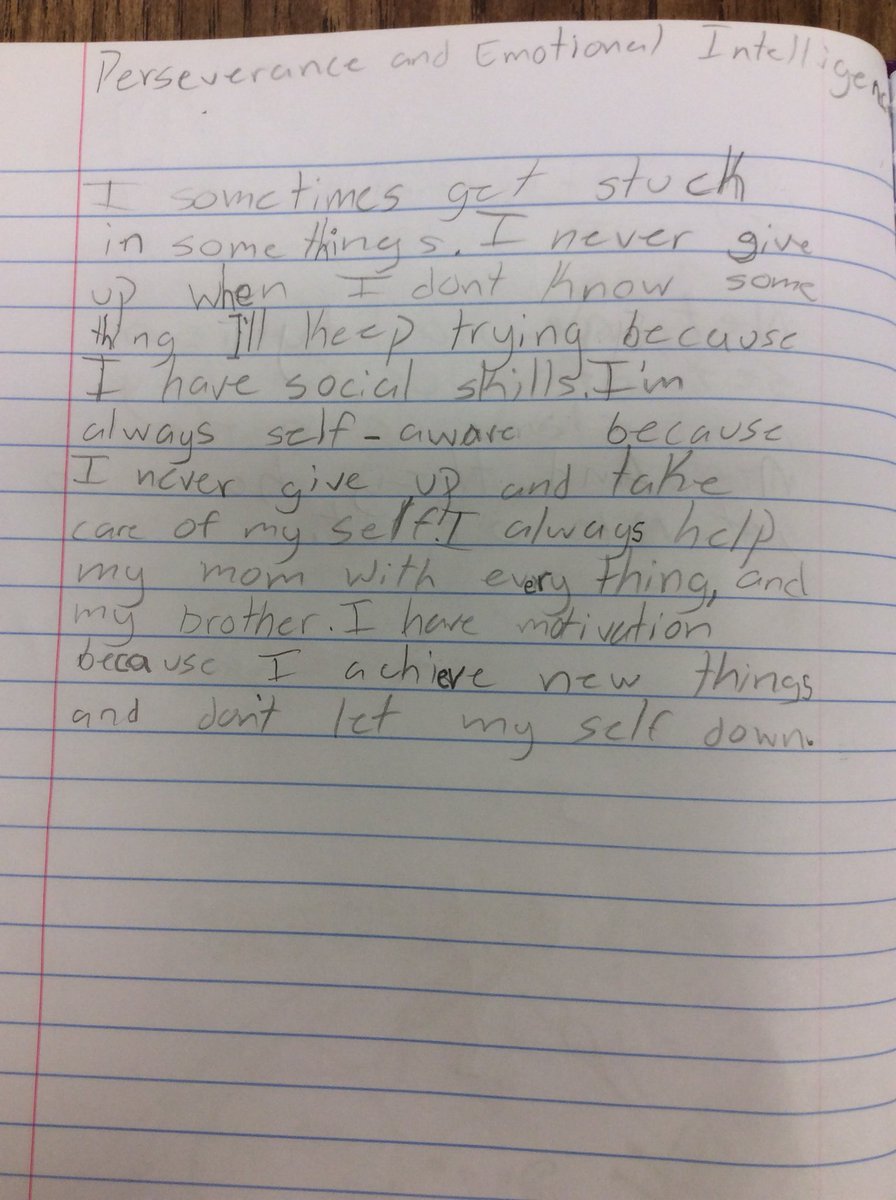 Perseverance and Emotional Intelligenc
I sometimes get stuck
in some things. I never give
up when I dont know some
thing I'll keep trying because
I have social skills. I'm
always self-aware because
I never give up and take
care of my self! I always help
my mom with every thing, and
my brother. I have motivation
because I achieve new things
and don't let my self down.